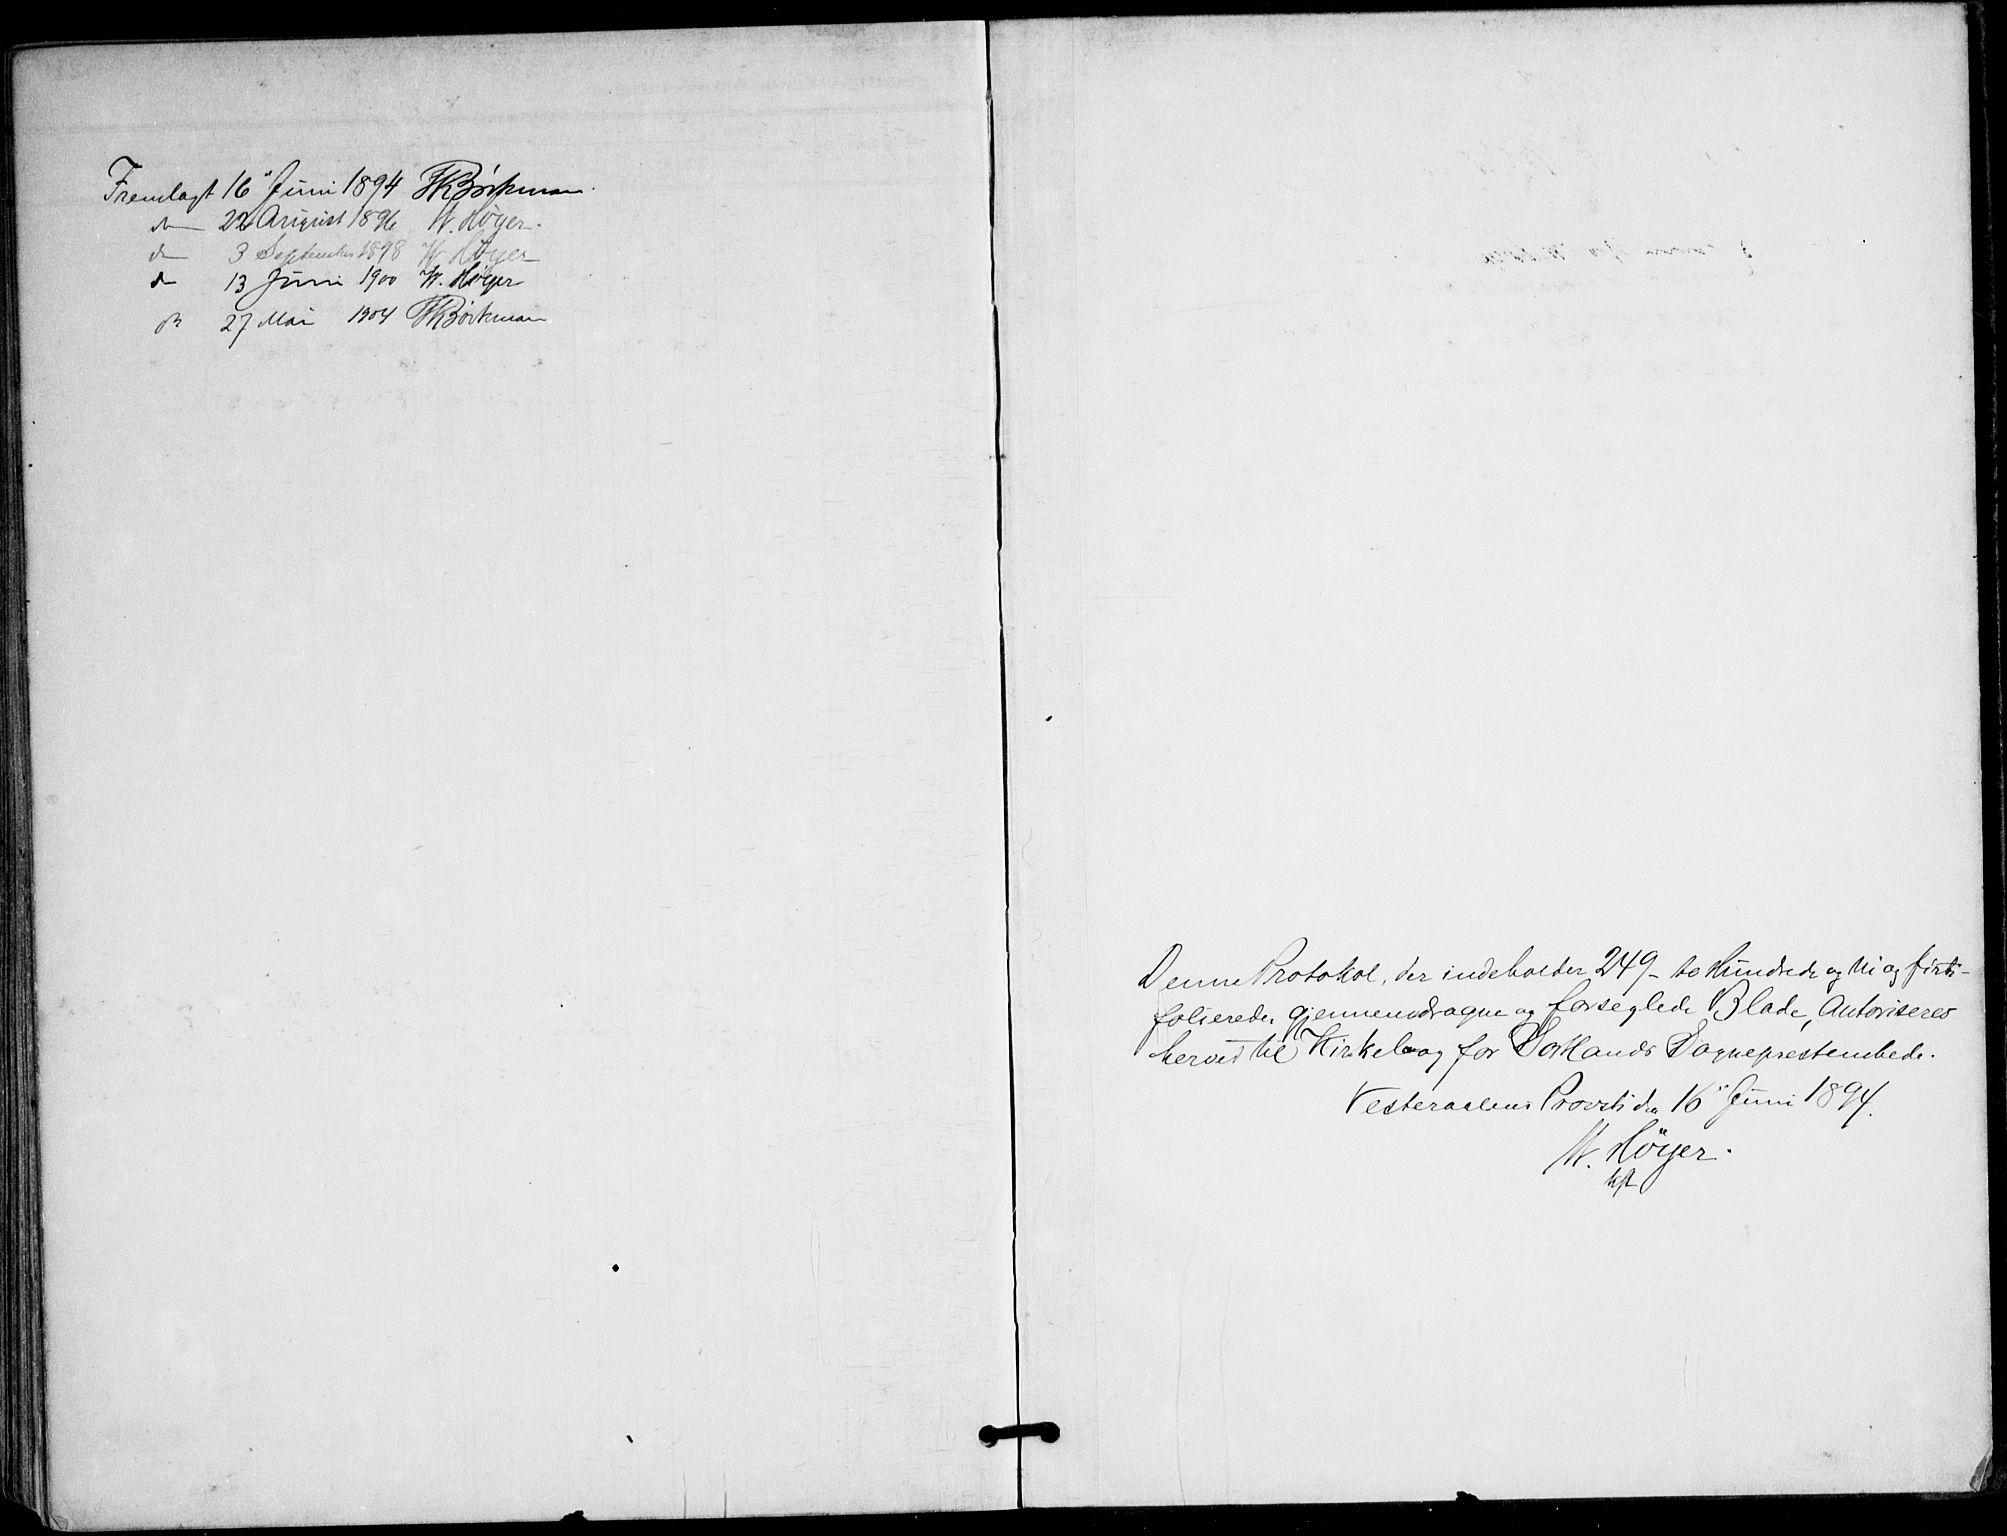 Fremlagt 16 Juni 1894 Børkman.
do 22 August 1896 W. Höyer.
do 3 September 1898 W Höyer
do 13 Juni 1900 W. Höyer
do 27 Mai 1904 Børkman
Denne Protokol, der indeholder 249 – to Hundrede og Ni og firti –
folierede, gjennemdragne og forseglede Blade, Autoriseres
herved til Kirkebog for Sortlands Sogneprestembede.
Vesteraalens Provsti den 16 Juni 1894.
W. Höyer.
kst